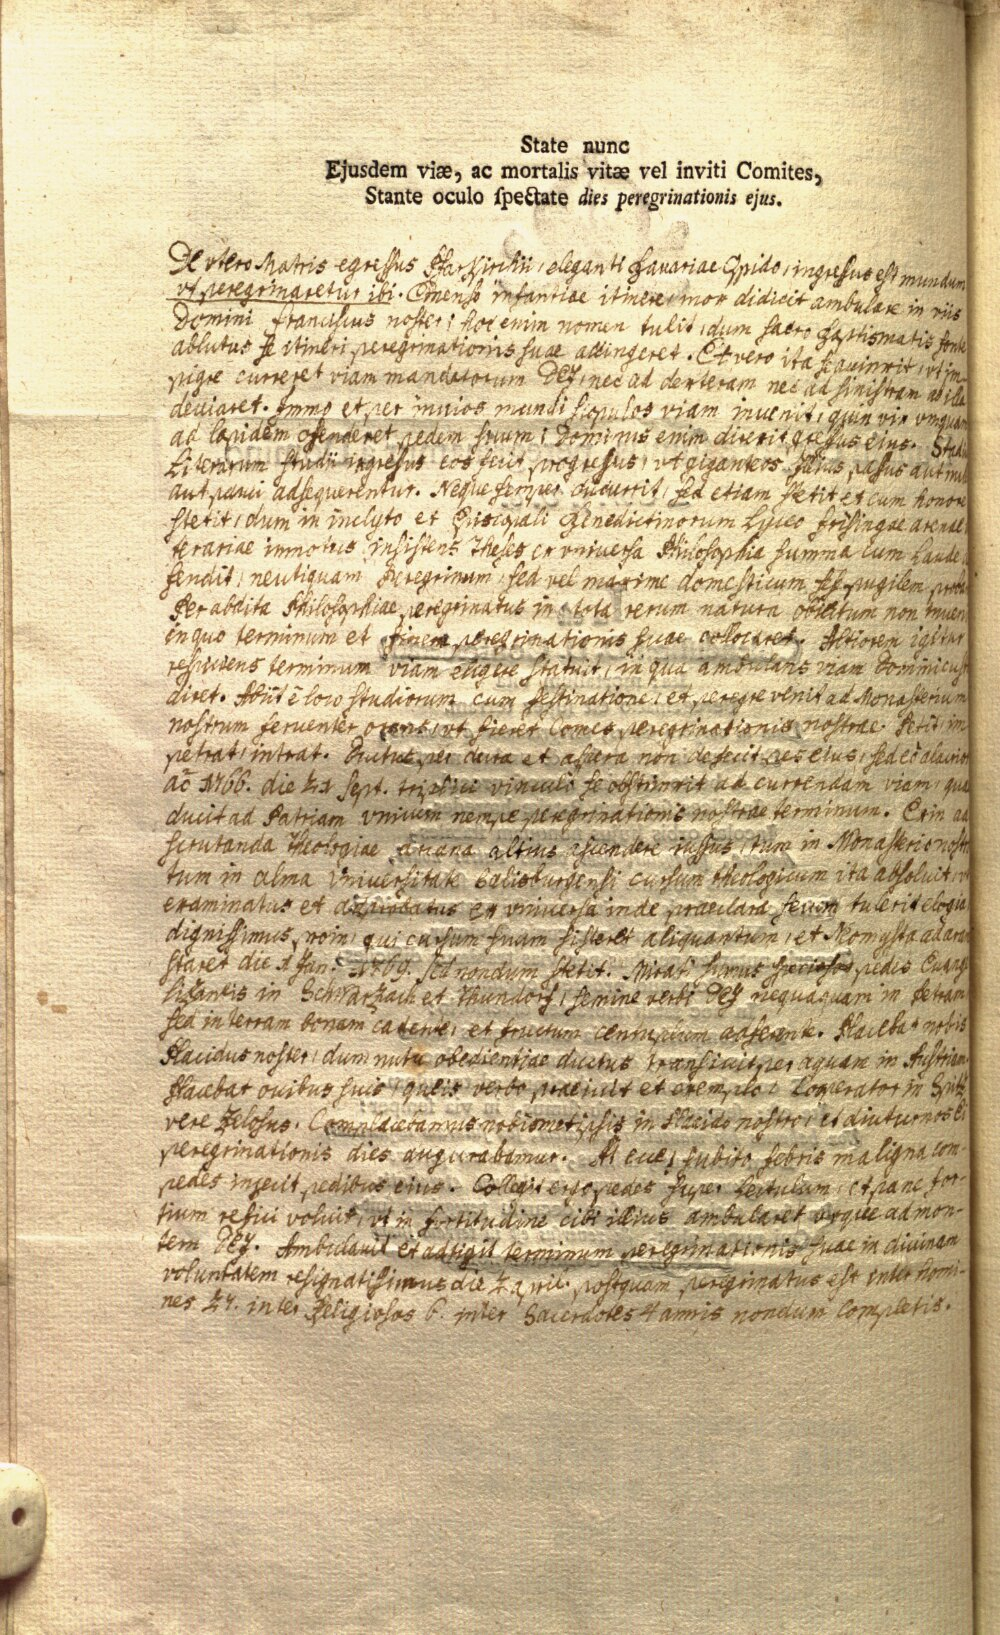 State nunc
Ejusdem viæ, ac mortalis vitæ vel inviti Comites,
Stante oculo ſpectate dies peregrinationis ejus.
De vtero Matris egressus Pfarrkirchii, eleganti Bavariae Oppido, ingressus est mundum
vt peregrinaretur ibi. Emenso infantiae itinere, mox didicit ambulare in viis
Domini Franciscus noster; hoc enim nomen tulit, dum sacro Baptismatis fonte
ablutus se itineri peregrinationis suae accingeret. Et vero ita se accinxit, vt im-
pigre curreret viam mandatorum DEJ, nec ad dexteram nec ad sinistram ab illa
deviaret. Immo et per invios mundi scopulos viam invenit, quin vix vnquam
ad lapidem offenderet pedem suum; Dominus enim direxit gressus eius.
Literarum studii ingressus eos fecit progressus, vt giganteos passus aut nulli
aut pauci adsequerentur. Neque semper cucurrit, sed etiam stetit et cum honore
stetit, dum in inclyto et Episcopali Benedictinorum Lyceo Frisingae arenae
terariae immotus insistens Theses ex vniversa Philosophia summa cum laude
fendit, neutiquam Peregrinum, sed vel maxime domesticum se pugilem
Per abdita Philosophiae peregrinatus in tota rerum natura obiectum non inveni
in quo terminum et finem peregrinationis suae collocaret. Altiorem igitur
respiciens terminum viam eligere statuit, in qua ambulans viam
diret. Abiit e loco studiorum cum festinatione, et peregre venit ad Monasterium
nostrum ferventer orans, vt fieret Comes peregrinationis nostrae. Petit, im-
petrat, intrat. per dura et aspera non defecit pes eius, sed
aō 1766. die 21 Sept. triplici vinculo se obstrinxit ad currendam viam, quae
ducit ad Patriam vnicum nempe peregrinationis nostrae terminum. Exin ad
scrutanda Theologiae arcana altius ascendere iussus, tum in Monasterio nostro
tum in alma Vniversitate Salisburgensi cursum theologicum ita absolvit, vt
examinatus et approbatus ex vniversa inde praeclara secum tulerit elogia,
dignissimus proin, qui cursum suum sisteret aliquantum, et Neomysta ad aram
staret die 1 Jan. 1769. sed nondum stetit. Mirati sumus speciosos pedes Evange
lizantis in Schwarzach et Thundorf, semine verbi DEJ nequaquam in petram,
sed in terram bonam cadente, et fructum centuplum adferente. Placebat nobis
Placidus noster, dum nutu obedientiae ductus transivit per aquam in Austriam
Placebat ovibus suis, queis verbo praeivit et exemplo, Cooperator in
vere zelosus. Complacebamus nobismetipsis in Placido nostro, et diuturnos ei
peregrinationis dies augurabamur. At ecce, subito febris maligna com-
pedes iniecit pedibus eius. Collegit ergo pedes super lectulum, et pane for-
tium refici voluit, vt in fortitudine cibi illius ambularet vsque ad mon-
tem DEJ. Ambulavit et adtigit terminum peregrinationis suae in divinam
voluntatem resignatissimus die 2 April. postquam peregrinatus est inter homi-
nes 27. inter Religiosos 6. inter Sacerdotes 4 annis nondum completis.